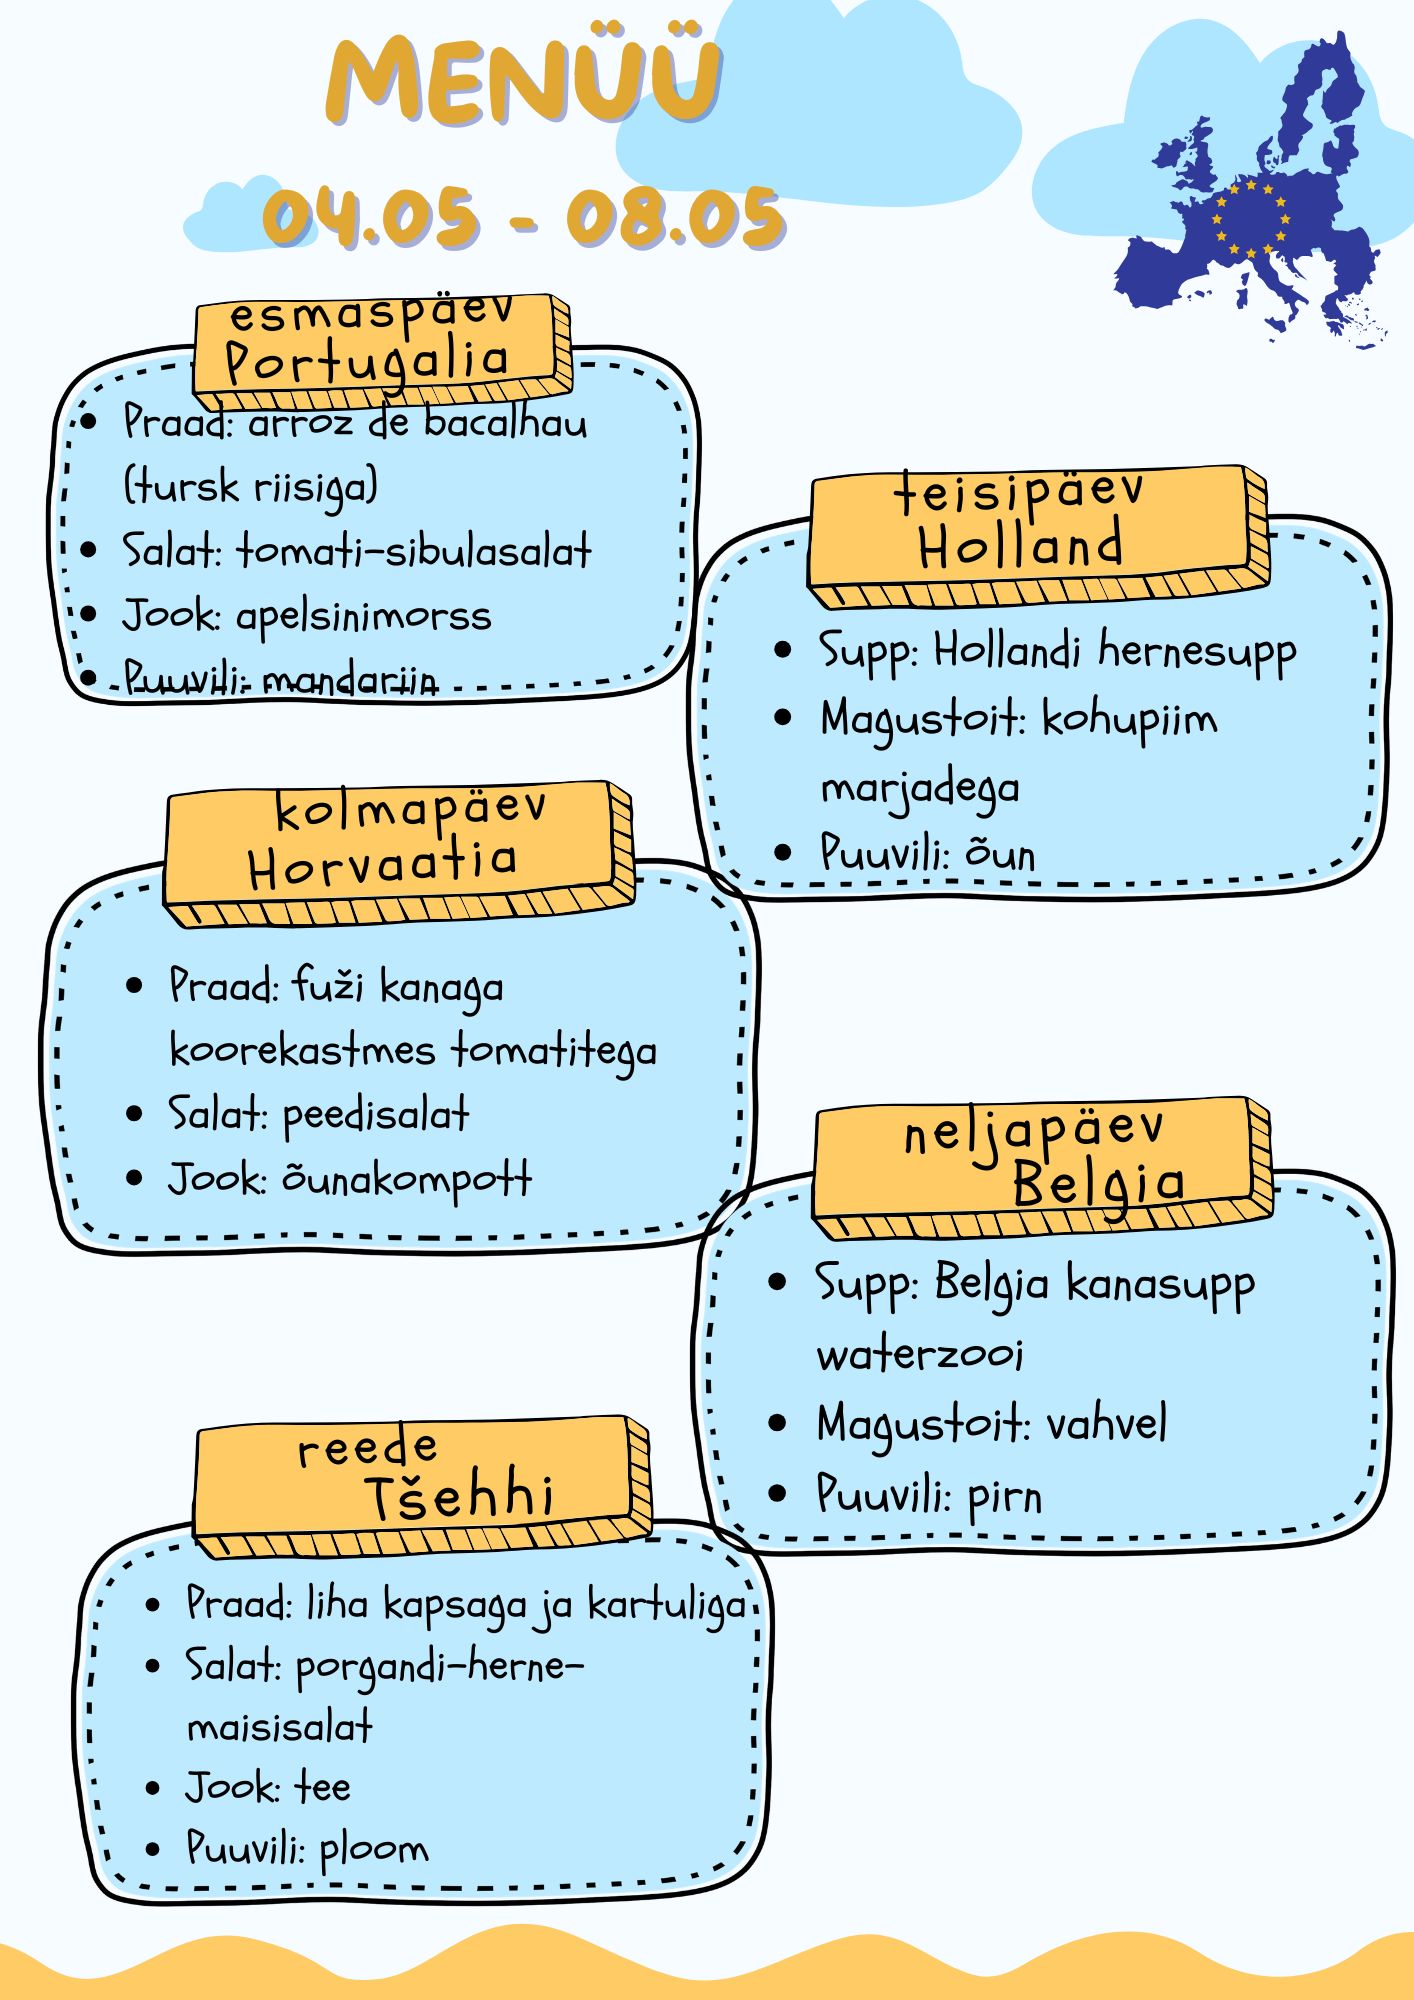 MENÜÜ
04.05 - 08.05
esmaspäev
Portugalia
• Praad: arroz de bacalhau
(tursk riisiga)
• Salat: tomati-sibulasalat
• Jook: apelsinimorss
• Puuvili: mandariin
teisipäev
Holland
• Supp: Hollandi hernesupp
• Magustoit: kohupiim
marjadega
• Puuvili: õun
kolmapäev
Horvaatia
• Praad: fuži kanaga
koorekastmes tomatitega
• Salat: peedisalat
• Jook: õunakompott
neljapäev
Belgia
• Supp: Belgia kanasupp
waterzooi
• Magustoit: vahvel
• Puuvili: pirn
reede
Tšehhi
• Praad: liha kapsaga ja kartuliga
• Salat: porgandi-herne-
maisisalat
• Jook: tee
• Puuvili: ploom